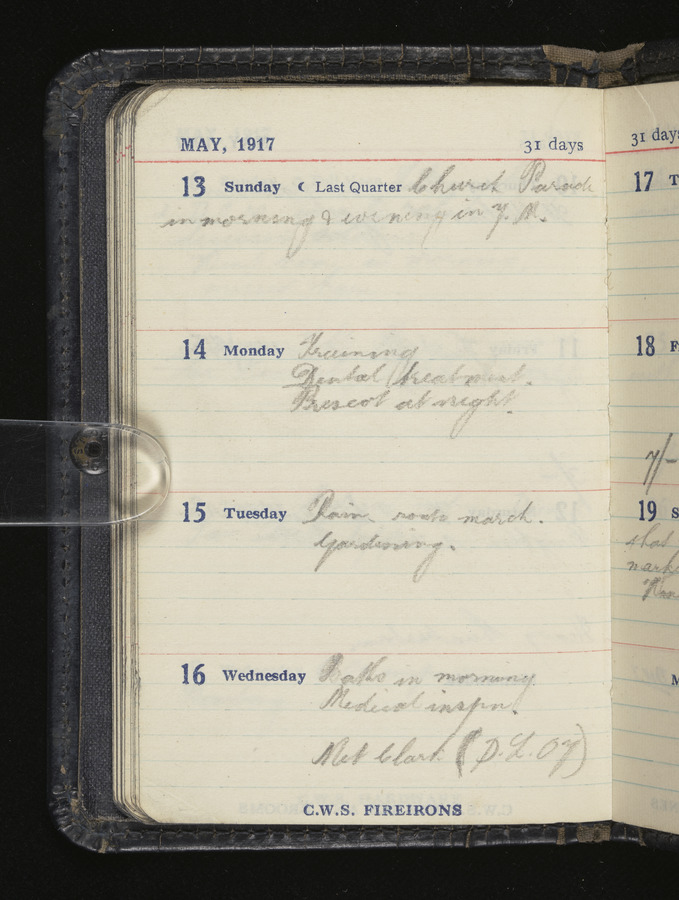 MAY, 1917 31 days
13 Sunday ☾ Last Quarter Church Parade
in morning & evening in Y. M.
14 Monday Training
Dental treatment.
Prescot at night.
15 Tuesday Rain route march.
Gardening.
16 Wednesday Baths in morning
Medical inspn.
Met Clark (D. L. Oy)
C.W.S. FIREIRONS
31 days
17 T
18 F
7/-
19 S
shot
mark